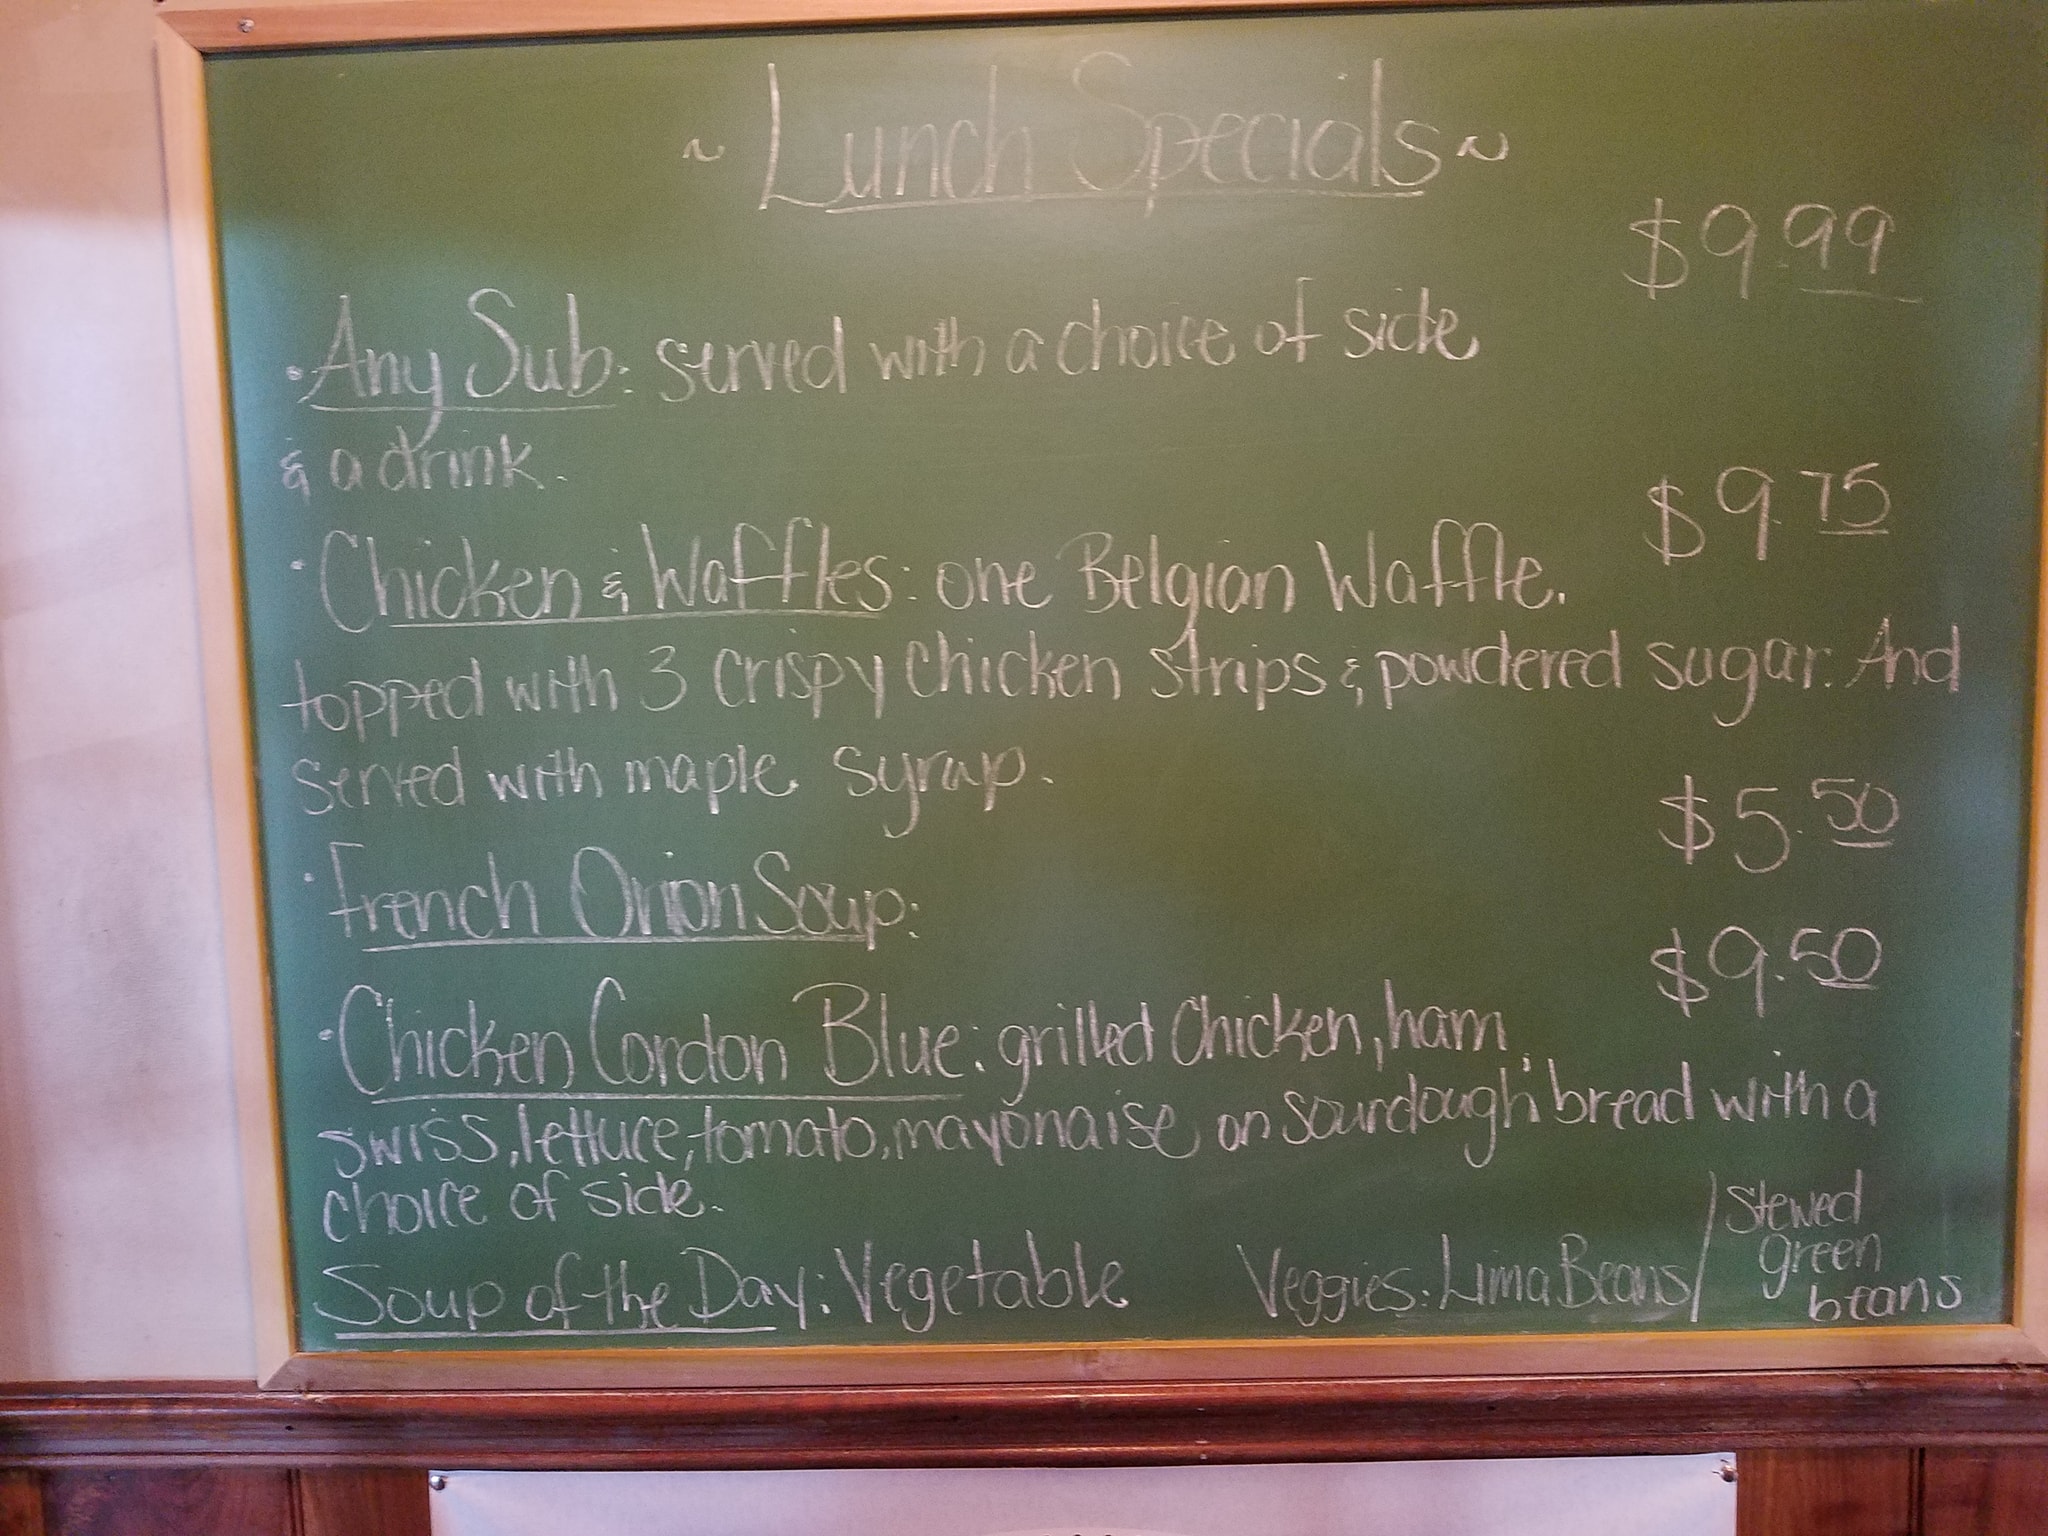 ~ Lunch Specials ~
$9.99
• Any Sub: served with a choice of side
& a drink.
$9.75
• Chicken & Waffles: one Belgian Waffle.
topped with 3 crispy chicken strips & powdered sugar. And
served with maple syrup.
$5.50
• French Onion Soup:
$9.50
• Chicken Cordon Blue: grilled Chicken, ham,
swiss, lettuce, tomato, mayonaise on sourdough bread with a
choice of side.
Soup of the Day: Vegetable
Veggies: Lima Beans/
Stewed
green
beans